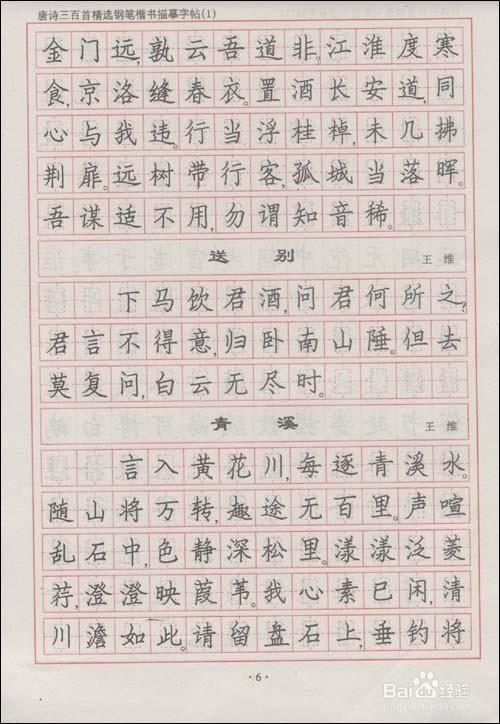 唐诗三百首精选钢笔楷书描摹字帖(1)
金门远,孰云吾道非。江淮度寒
食,京洛缝春衣。置酒长安道,同
心与我违。行当浮桂棹,未几拂
荆扉。远树带行客,孤城当落晖。
吾谋适不用,勿谓知音稀。
送别 王维
下马饮君酒,问君何所之?
君言不得意,归卧南山陲。但去
莫复问,白云无尽时。
青溪 王维
言入黄花川,每逐青溪水。
随山将万转,趣途无百里。声喧
乱石中,色静深松里。漾漾泛菱
荇,澄澄映葭苇。我心素已闲,清
川澹如此。请留盘石上,垂钓将
·6·
Baidu经验
jingyan.baidu.com